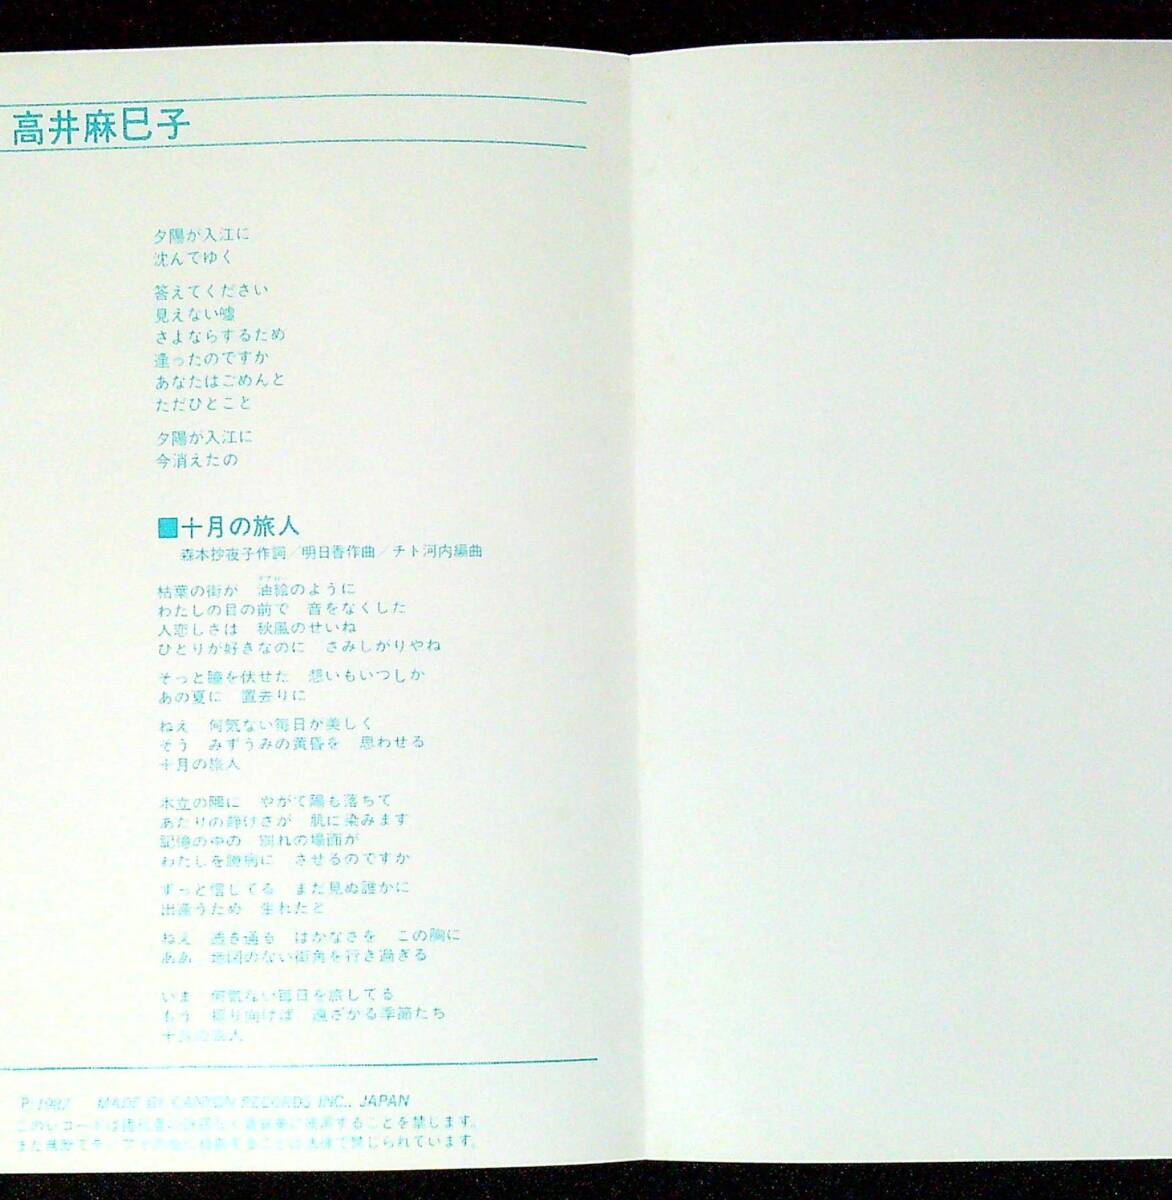 高井麻巳子
夕陽が入江に
沈んでゆく
答えてください
見えない嘘
さよならするため
逢ったのですか
あなたはごめんと
ただひとこと
夕陽が入江に
今消えたの
■十月の旅人
森本抄夜子作詞／明日香作曲／チト河内編曲
枯葉の街が　油絵のように
わたしの目の前で　音をなくした
人恋しさは　秋風のせいね
ひとりが好きなのに　さみしがりやね
そっと瞳を伏せた　想いもいつしか
あの夏に　置去りに
ねえ　何気ない毎日が美しく
そう　みずうみの黄昏を　思わせる
十月の旅人
木立の陰に　やがて陽も落ちて
あたりの静けさが　肌に染みます
記憶の中の　別れの場面が
わたしを臆病に　させるのですか
ずっと信じてる　まだ見ぬ誰かに
出逢うため　生れたと
ねえ　透き通る　はかなさを　この胸に
ああ　地図のない街角を行き過ぎる
いま　何気ない毎日を旅してる
もう　振り向けば　遠ざかる季節たち
十月の旅人
P 1987 MADE BY CANYON RECORDS INC., JAPAN
このレコードは権利者の許諾なく賃貸業に使用することを禁じます。
また無断でテープその他に録音することは法律で禁じられています。